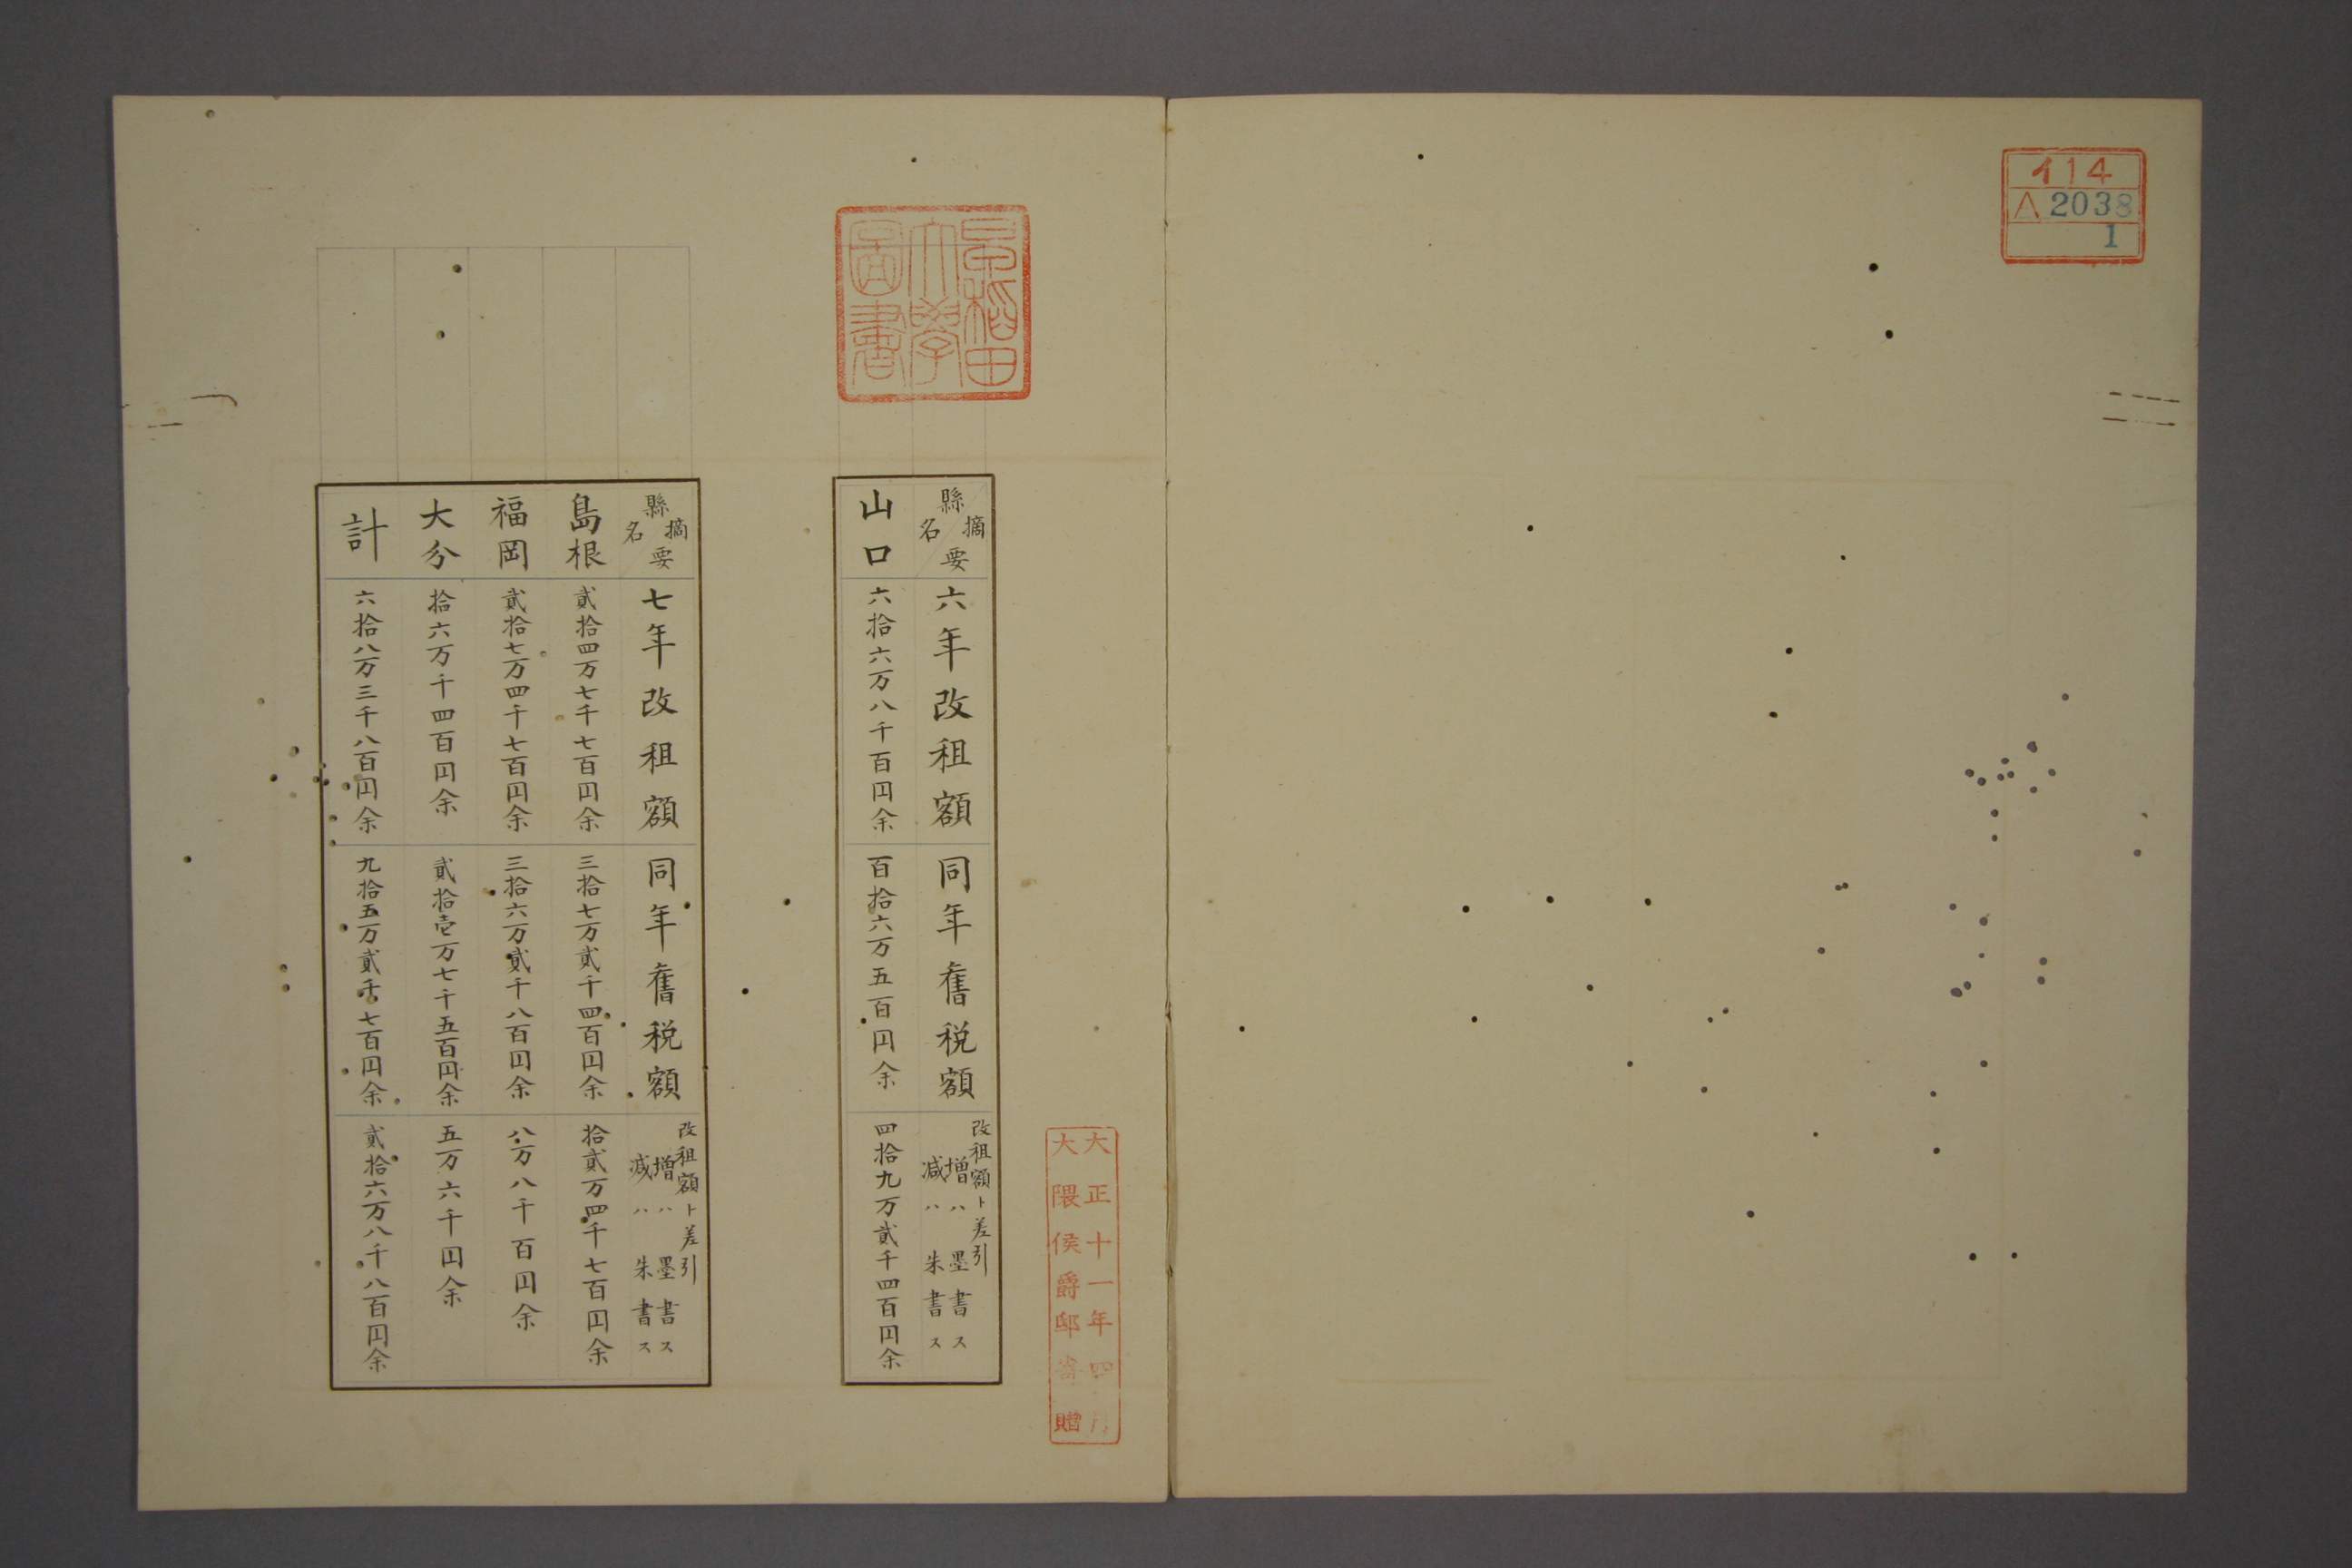 イ14
A2038
1
早稲田
大學
圖書
大正十一年四月
大隈侯爵邸寄贈
縣名 摘要
六年改租額
同年舊税額
改租額ト差引
増ハ墨書ス
減ハ朱書ス
山口
六拾六万八千百円余
百拾六万五百円余
四拾九万貳千四百円余
縣名 摘要
七年改租額
同年舊税額
改租額ト差引
増ハ墨書ス
減ハ朱書ス
島根
貳拾四万七千七百円余
三拾七万貳千四百円余
拾貳万四千七百円余
福岡
貳拾七万四千七百円余
三拾六万貳千八百円余
八万八千百円余
大分
拾六万千四百円余
貳拾壱万七千五百円余
五万六千円余
計
六拾八万三千八百円余
九拾五万貳千七百円余
貳拾六万八千八百円余